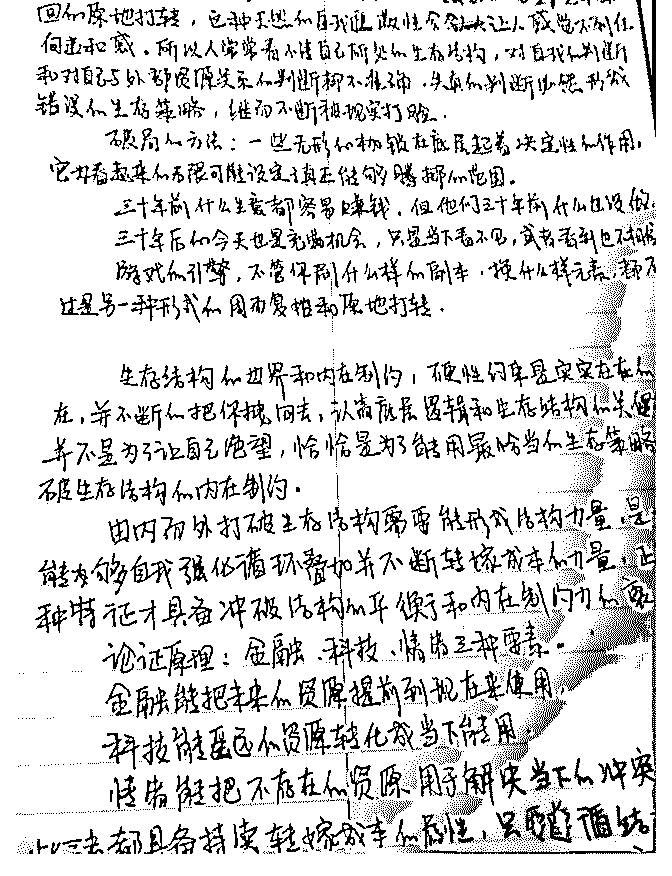 回的原地打转，这种天然的自我收敛性会让人感觉不到任
何迷和惑。所以人常常看不清自己所处的生存结构，对自我的判断
和对自己与外部资源关系的判断都不准确，失真的判断必然形成
错误的生存策略，继而不断被现实打脸。
破局的方法：一些无形的枷锁在底层起着决定性的作用，
它为看起来的无限可能设定了真正能够腾挪的范围。
三十年前什么生意都容易赚钱，但他们三十年前什么也没做
三十年后的今天也是充满机会，只是当下看不见，或者看到也不相信
游戏的引擎，不管你刷什么样的副本，换什么样元素，都不
过是另一种形式的周而复始和原地打转。
生存结构的边界和内在制约，硬性约束是实实在在的
在，并不断的把你拽回去，认清底层逻辑和生存结构的关键
并不是为了让自己绝望，恰恰是为了能用最恰当的生存策略
破生存结构的内在制约。
由内而外打破生存结构需要能形成结构力量，是
能够自我强化循环叠加并不断转嫁成本的力量，正
种特征才具备冲破结构的平衡于和内在制约力的
论证原理：金融、科技、情绪三种要素。
金融能把未来的资源提前到现在来使用，
科技能遥远的资源转化成当下能用
情绪能把不存在的资源用于解决当下的冲突
三者都具备持续转嫁成本的属性，只要遵循结